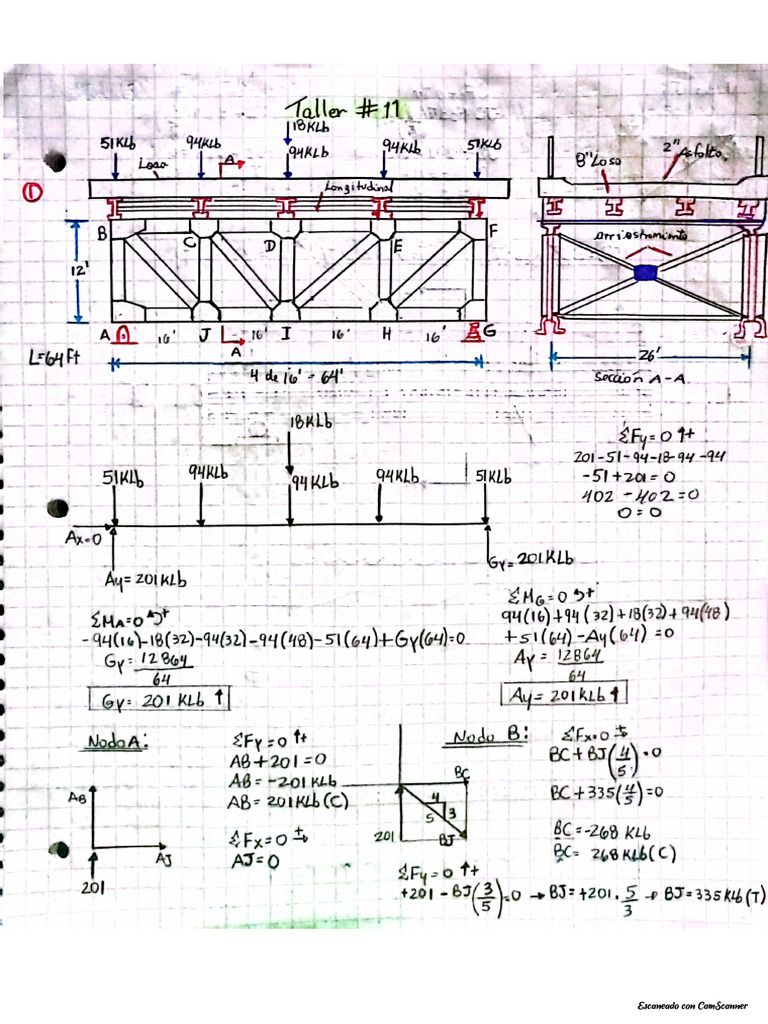 Taller #11
18Klb
51Klb 94Klb 94Klb 94Klb 51Klb
Losa A
Longitudinal
8" Losa 2" Asfalto
①
B C D E F
arriostramiento
12'
A J I H G
16' 16' 16' 16'
A
L=64Ft
4 de 16' = 64'
26'
Sección A-A
18Klb
51Klb 94Klb 94Klb 94Klb 51Klb
Ax=0
Ay=201Klb
Gy=201Klb
ΣFy=0 ↑+
201-51-94-18-94-94
-51+201=0
402-402=0
0=0
ΣMA=0 ↺+
-94(16)-18(32)-94(32)-94(48)-51(64)+Gy(64)=0
Gy=12864
64
Gy= 201 Klb ↑
ΣMG=0 ↺+
94(16)+94(32)+18(32)+94(48)
+51(64)-Ay(64)=0
Ay=12864
64
Ay=201Klb ↑
Nodo A:
AB
AJ
201
ΣFy=0 ↑+
AB+201=0
AB=-201Klb
AB=201Klb(C)
ΣFx=0 →+
AJ=0
Nodo B:
BC
4
5 3
201 BJ
ΣFx=0 →+
BC+BJ(4/5)=0
BC+335(4/5)=0
BC=-268 Klb
BC= 268Klb(C)
ΣFy=0 ↑+
+201-BJ(3/5)=0 → BJ=+201·5/3 → BJ=335Klb(T)
Escaneado con CamScanner